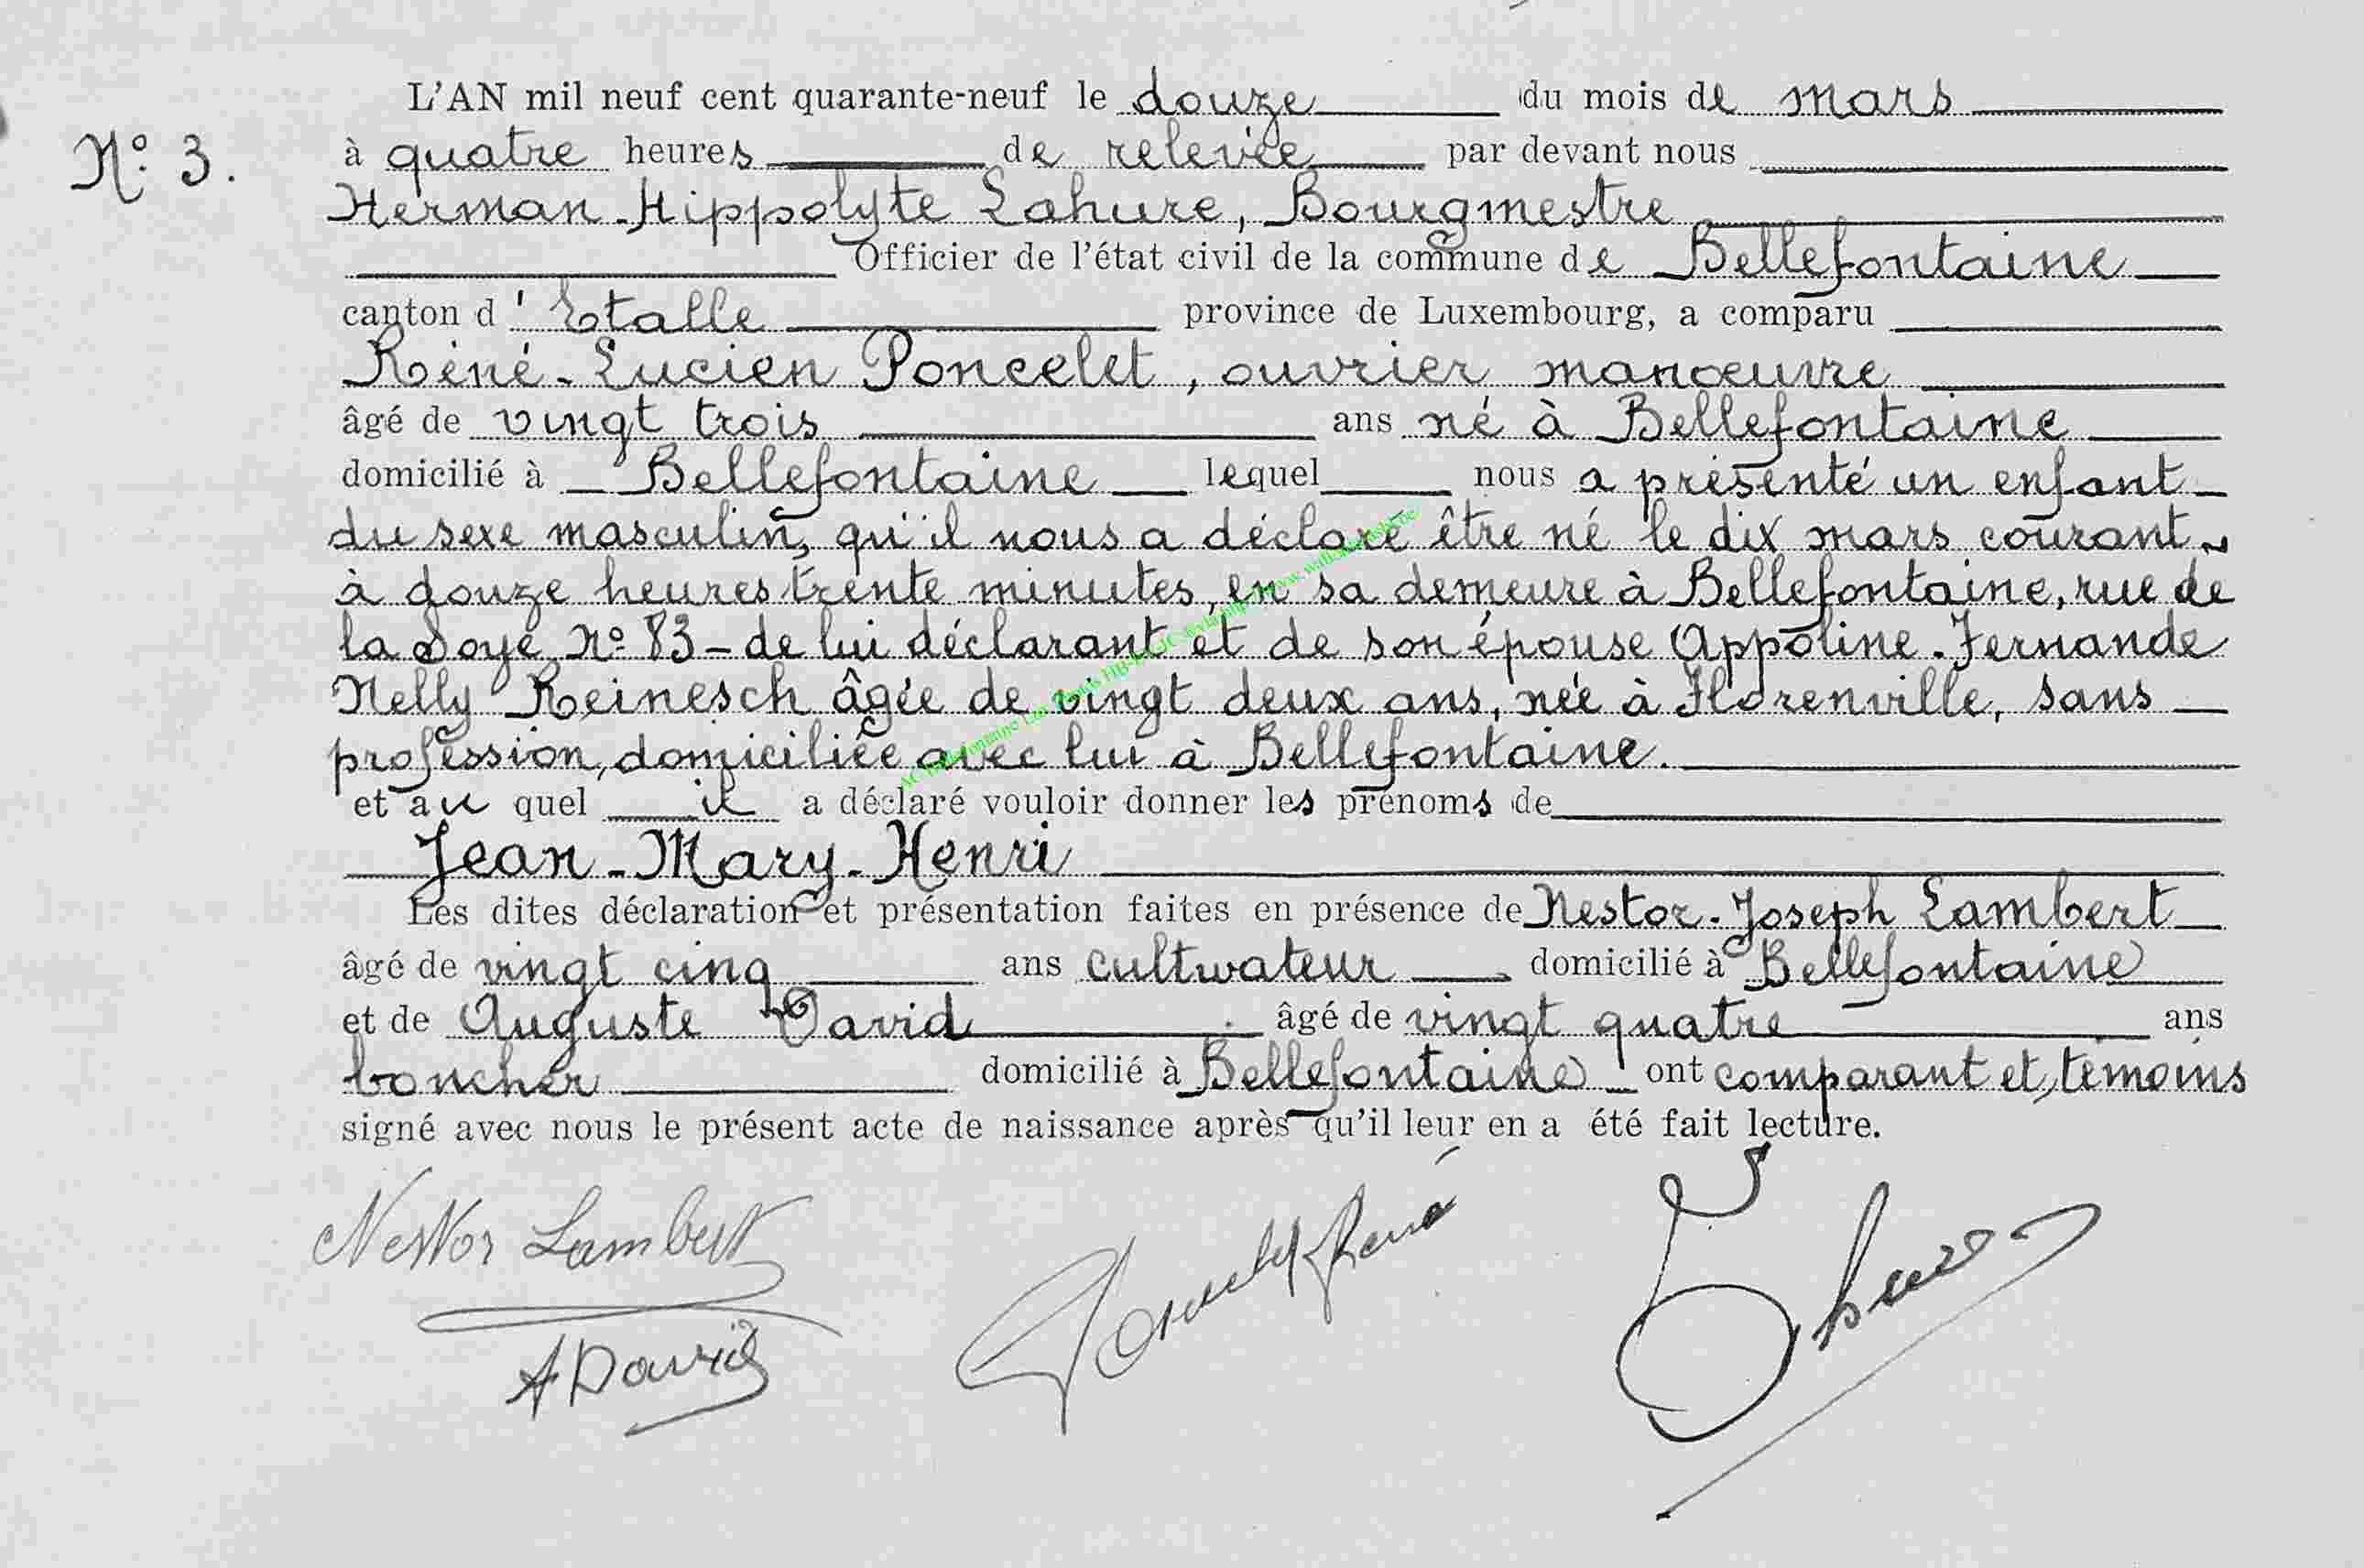 L'AN mil neuf cent quarante-neuf le douze du mois de mars
N° 3. à quatre heures de relevée par devant nous
Herman-Hippolyte Lahure, Bourgmestre
Officier de l'état civil de la commune de Bellefontaine
canton d'Etalle province de Luxembourg, a comparu
Réné-Lucien Poncelet, ouvrier manœuvre
âgé de vingt trois ans né à Bellefontaine
domicilié à Bellefontaine lequel nous a présenté un enfant
du sexe masculin, qu'il nous a déclaré être né le dix mars courant
à douze heures trente minutes, en sa demeure à Bellefontaine, rue de
la Soye N° 83 - de lui déclarant et de son épouse Appoline-Fernande
Nelly Reinesch âgée de vingt deux ans, née à Florenville, sans
profession, domiciliée avec lui à Bellefontaine.
et au quel il a déclaré vouloir donner les prénoms de
Jean-Mary-Henri
Les dites déclaration et présentation faites en présence de Nestor-Joseph Lambert
âgé de vingt cinq ans cultivateur domicilié à Bellefontaine
et de Auguste David âgé de vingt quatre ans
boucher domicilié à Bellefontaine ont comparant et témoins
signé avec nous le présent acte de naissance après qu'il leur en a été fait lecture.
Nestor Lambert Poncelet René Lahure
A David